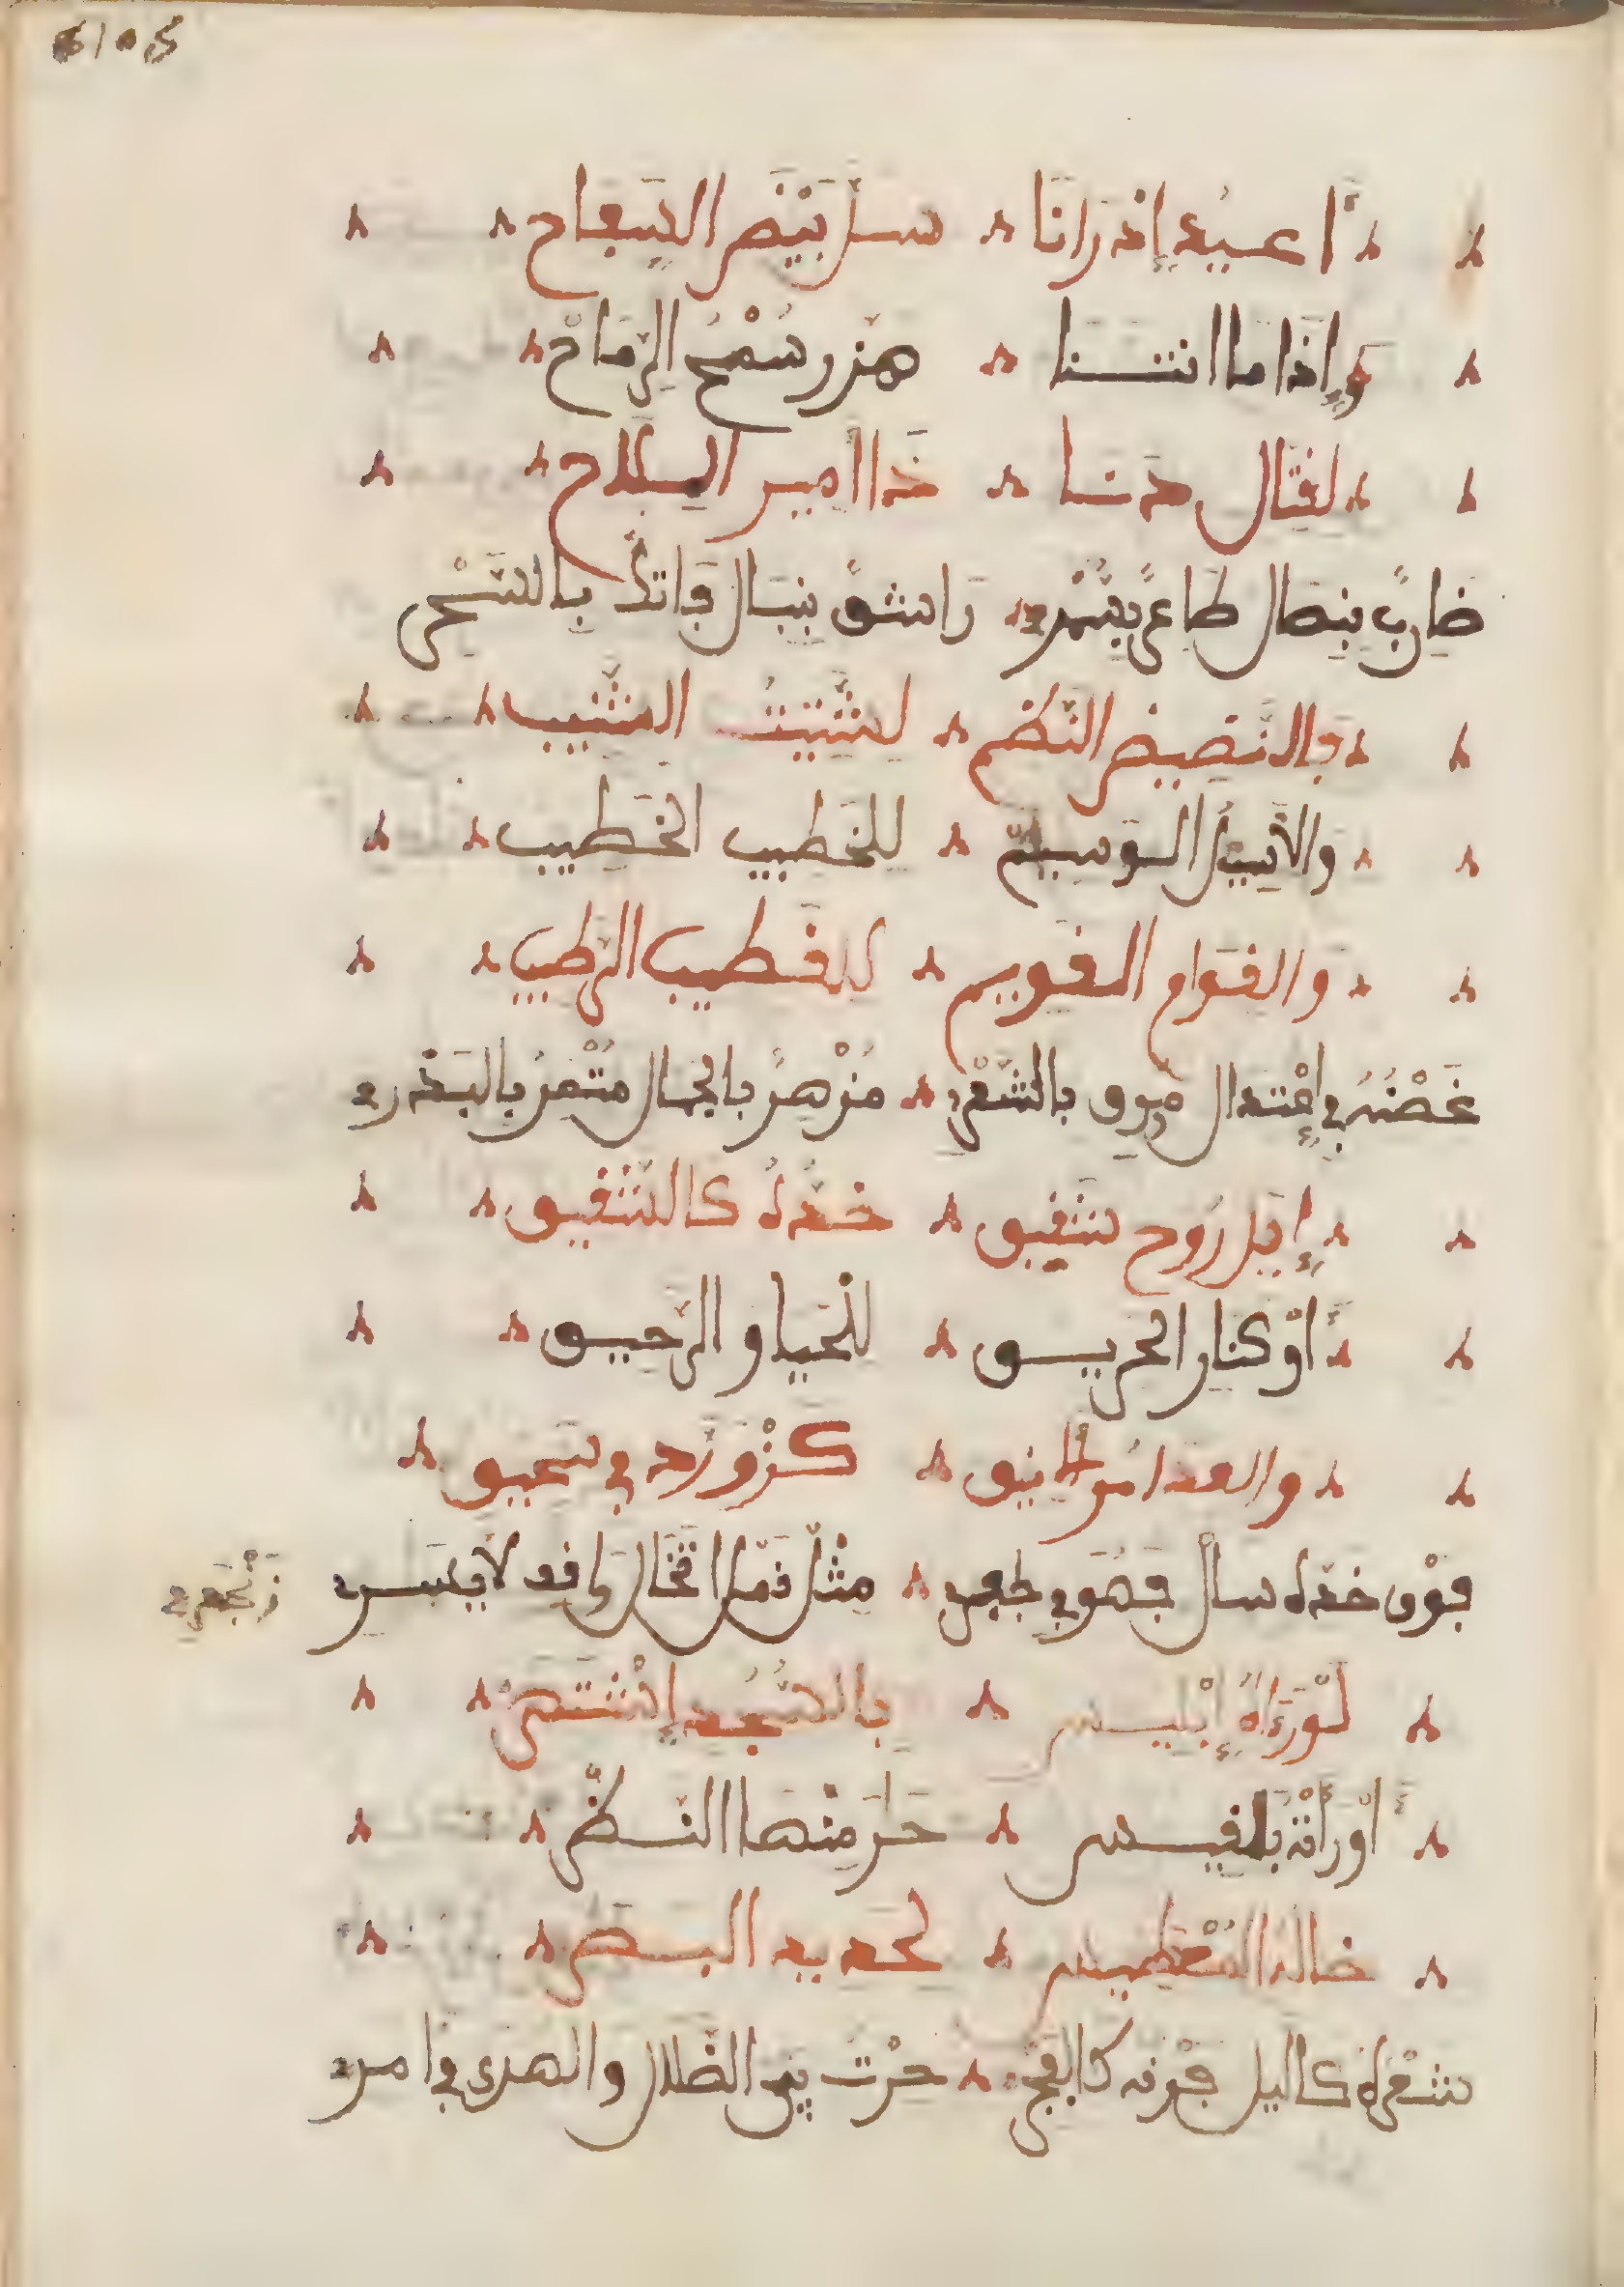 أَعيُدِ إِذْ رَانَا سلّ بِيْضَ الصِّفاح
وَإِذَا ما انثنا هزّ سُمْرُ الرِّماحْ
لقتَال دنَا خَذا أمير السِّلاح
ضاربً بنِصال طاعنً بِسُّمْرِ رَاشقً بنبَال فَاتكً باللسَّحْر
فالنَّضيض النَّظم لشَّتيت الشَّنيب
والأَسيلُ الوسيم للخَطيب الخَطيب
والقوَام القويم للقَطيب الرّطيب
غُصْنُهُ في إِعْتدال مُورق بالشَّعْر مُزْهرٌ بالجمال مثْمرٌ بالبَدْر
إِبلِ رَوح شَقيق خدّهُ كالشَّقيق
أَوْ كنار الحريق للْحَيا والرَّحيق
والعذار الأنيق كزْ وَرَد في سَحيق
فوْق خدّه سال فهْو في طعْم مثْل نمْل اتخَّال وَاقد لا يسر
زنْجَفر
لوْرَءَاهُ إِبْليس بالسُّجُد إِشْتَهرْ
أَوْ رَأتْهُ بَلْقيس حَارَ منْها النّظرْ
خالهُ المُغْطيس لحَديد البَصرْ
شعْرهُ كاليل فوْقه كالفجْر حرْت بيْن الضّلال والهدى في امر